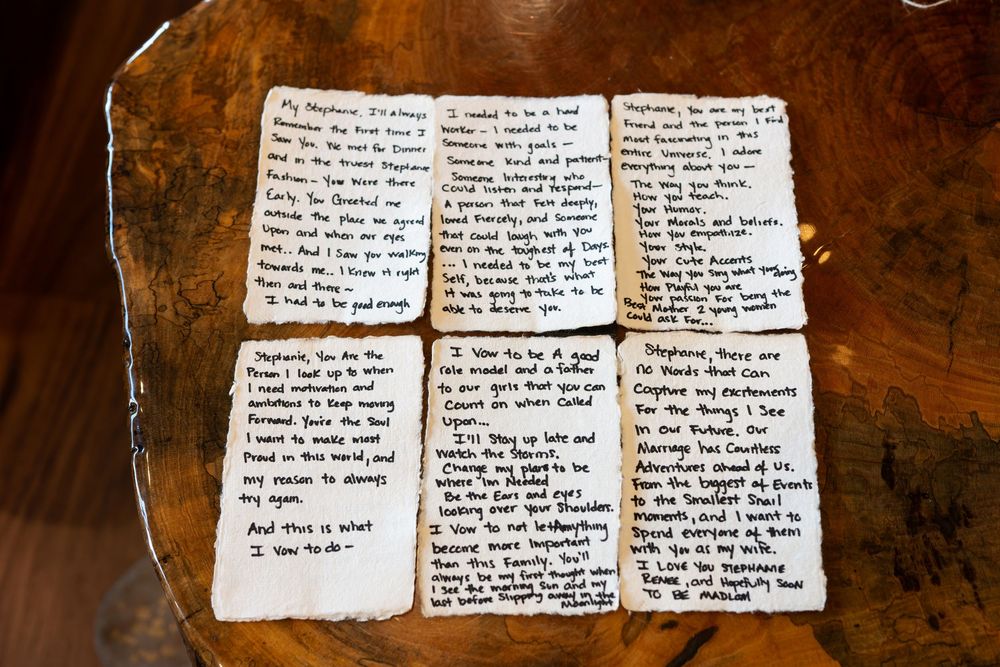 My Stephanie, I'll always
Remember the First time I
Saw You. We met for Dinner
and in the truest Stephanie
Fashion - You Were there
Early. You Greeted me
outside the place we agreed
Upon and when our eyes
met.. And I Saw you walking
towards me.. I knew it right
then and there ~
I had to be good enough
I needed to be a hard
Worker - I needed to be
Someone with goals -
Someone Kind and patient-
Someone Interesting who
Could listen and respond-
A person that Felt deeply,
loved Fiercely, and Someone
that could laugh with you
even on the toughest of Days.
... I needed to be my best
Self, because that's what
It was going to take to be
able to deserve you.
Stephanie, You are my best
Friend and the person I Find
most fascinating in this
entire Universe. I adore
everything about you -
The way you think.
How you teach.
Your Humor.
Your Morals and beliefs.
How you empathize.
Your Style.
Your Cute Accents
The Way you Sing what your doing
How Playful you are
Your passion For being the
Best Mother 2 young women
could ask For...
Stephanie, You Are the
Person I look up to when
I need motivation and
ambitions to Keep moving
Forward. You're the Soul
I want to make most
Proud in this world, and
my reason to always
try again.
And this is what
I vow to do -
I Vow to be A good
role model and a father
to our girls that you can
Count on when Called
Upon...
I'll Stay up late and
Watch the Storms.
Change my plans to be
where Im Needed
Be the Ears and eyes
looking over Your Shoulders.
I Vow to not let Anything
become more Important
than this Family. You'll
always be my first thought when
I see the morning Sun and my
last before Slipping away in the
Moonlight
Stephanie, there are
no Words that Can
Capture my excitements
For the things I See
In our Future. Our
Marriage has Countless
Adventures ahead of Us.
From the biggest of Events
to the Smallest Snail
moments, and I want to
Spend everyone of them
with you as my wife.
I LOVE YOU STEPHANIE
RENEE, and Hopefully Soon
TO BE MADLOM